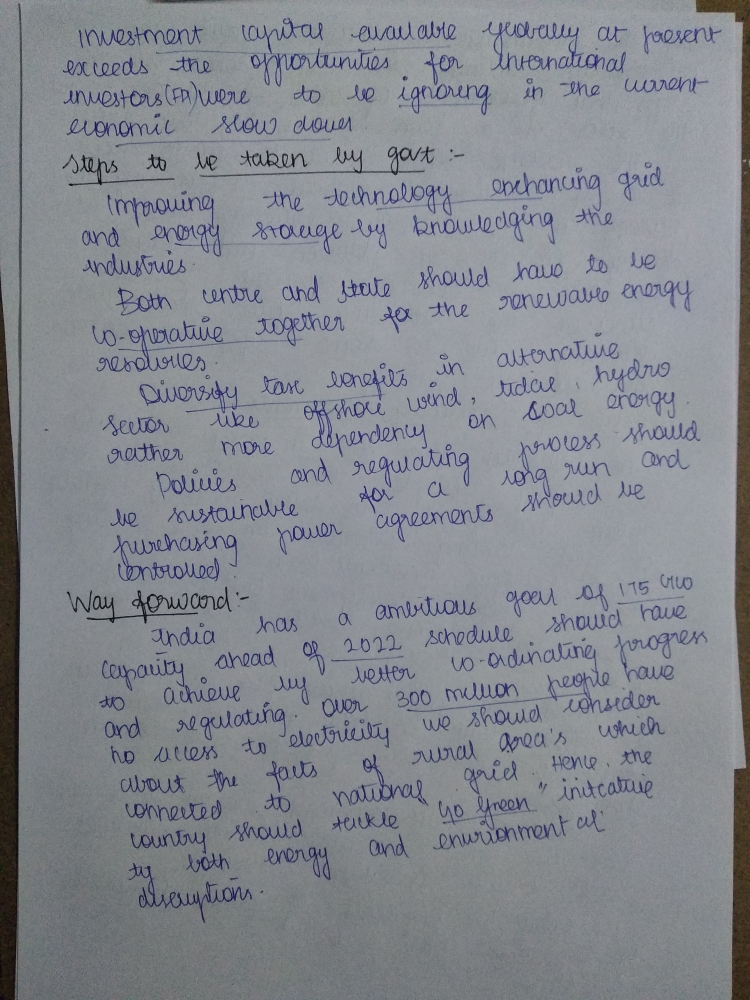 Investment capital available globally at present
exceeds the opportunities for International
investors(FDI) were to be ignoring in the current
economic slow down
Steps to be taken by govt :-
Improving the technology enchancing grid
and energy storage by knowledging the
industries.
Both centre and state should have to be
co-operative together for the renewable energy
resources.
Diversify tax benefits in alternative
sector like offshore wind, tidal, hydro
rather more dependency on soal energy.
Policies and regulating process should
be sustainable for a long run and
purchasing power agreements should be
controlled.
Way forward:-
India has a ambitious goal of 175 GW
capacity ahead of 2022 schedule should have
to achieve by better co-ordinating progress
and regulating. Over 300 million people have
no access to electricity we should consider
about the facts of rural area's which
connected to national grid. Hence, the
country should tackle "Go Green" initcative
by both energy and envirionmental
disruptions.